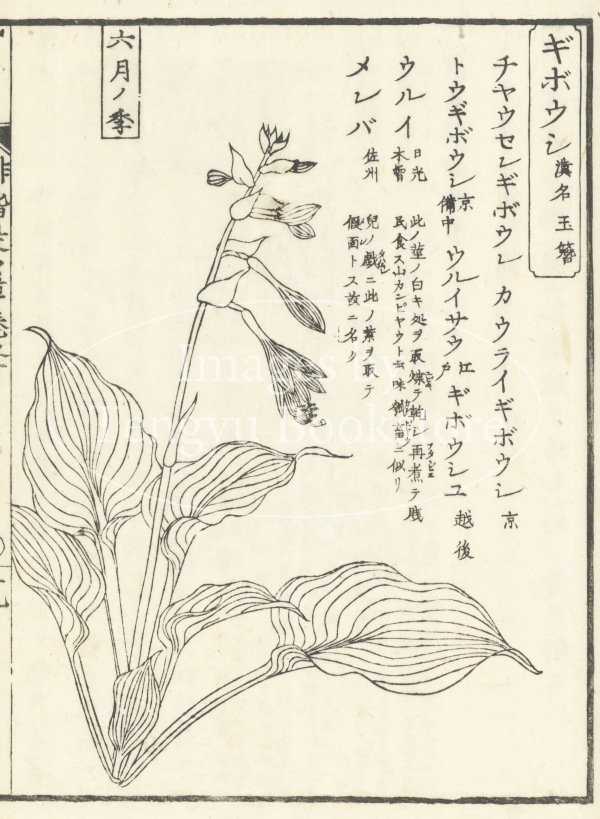 ギボウシ 漢名 玉簪
チヤウセンギボウシ カウライギボウシ 京
トウギボウシ 京 備中 ウルイサウ 江戸 ギボウシユ 越後
ウルイ 日光 木曽 此ノ莖ノ白キ処ヲ取煠テ乾シ再煮テ賤
民食ス山カンピヤウト云味 ニ似リ
メンバ 佐州 兒ノ戯ニ此ノ葉ヲ取テ
假面トス故ニ名ク
六月ノ季
Images by
Tengyu Bookstore